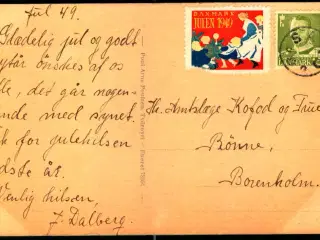 Jul 49.
Glædelig jul og godt
nytår ønskes af os
alle, det går nogen-
lunde med synet.
Tak for julehilsen
sidste år.
Venlig hilsen,
J. Dalberg.
DANMARK
JULEN 1949
DANMARK
Hr. Amtslæge Kofod og Frue
Rönne,
Bornholm.